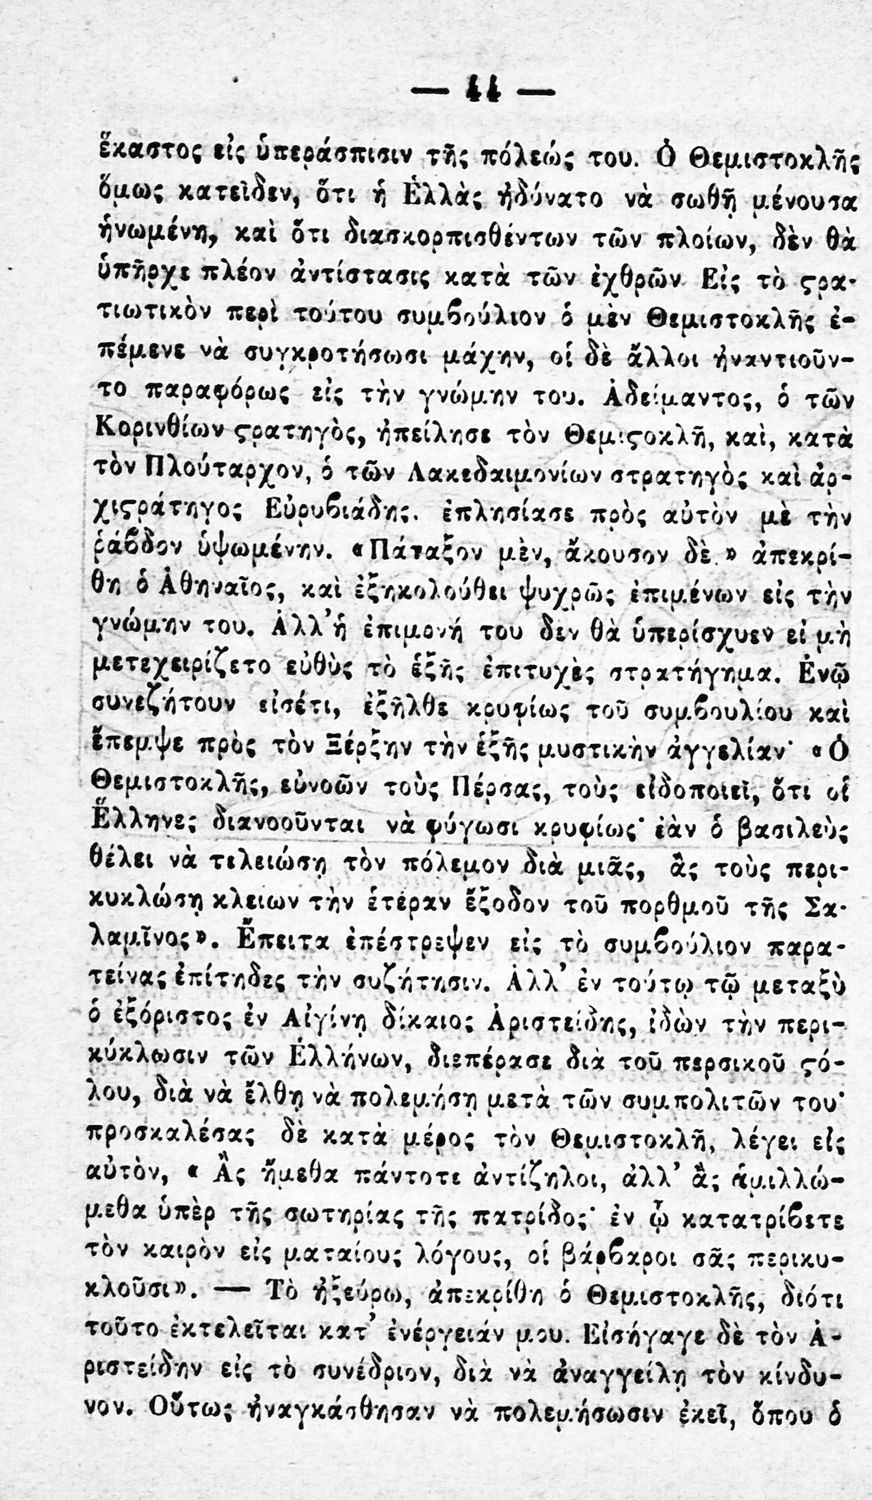 — 44 —
ἕκαστος εἰς ὑπεράσπισιν τῆς πόλεώς του. Ὁ Θεμιστοκλῆς
ὅμως κατεῖδεν, ὅτι ἡ Ἑλλὰς ἠδύνατο νὰ σωθῇ μένουσα
ἡνωμένη, καὶ ὅτι διασκορπισθέντων τῶν πλοίων, δὲν θὰ
ὑπῆρχε πλέον ἀντίστασις κατὰ τῶν ἐχθρῶν. Εἰς τὸ ϛρα-
τιωτικὸν περὶ τούτου συμϐούλιον ὁ μὲν Θεμιστοκλῆς ἐ-
πέμενε νὰ συγκροτήσωσι μάχην, οἱ δὲ ἄλλοι ἠναντιοῦν-
το παραφόρως εἰς τὴν γνώμην του. Ἀδείμαντος, ὁ τῶν
Κορινθίων ϛρατηγὸς, ἠπείλησε τὸν Θεμιϛοκλῆ, καὶ, κατὰ
τὸν Πλούταρχον, ὁ τῶν Λακεδαιμονίων στρατηγὸς καὶ ἀρ-
χιϛράτηγος Εὐρυϐιάδης. ἐπλησίασε πρὸς αὐτὸν μὲ τὴν
ῥάϐδον ὑψωμένην. «Πάταξον μὲν, ἄκουσον δὲ.» ἀπεκρί-
θη ὁ Ἀθηναῖος, καὶ ἐξηκολούθει ψυχρῶς ἐπιμένων εἰς τὴν
γνώμην του. Ἀλλ' ἡ ἐπιμονή του δεν θὰ ὑπερίσχυεν εἰ μὴ
μετεχειρίζετο εὐθὺς τὸ ἑξῆς ἐπιτυχὲς στρατήγημα. Ἐνῷ
συνεζήτουν εἰσέτι, ἐξῆλθε κρυφίως τοῦ συμϐουλίου καὶ
ἔπεμψε πρὸς τὸν Ξέρξην τὴν ἑξῆς μυστικὴν ἀγγελίαν· «Ὁ
Θεμιστοκλῆς, εὐνοῶν τοὺς Πέρσας, τοὺς εἰδοποιεῖ, ὅτι οἱ
Ἕλληνες διανοοῦνται νὰ φύγωσι κρυφίως· ἐὰν ὁ βασιλεὺς
θέλει νὰ τελειώσῃ τὸν πόλεμον διὰ μιᾶς, ἂς τοὺς περι-
κυκλώσῃ κλειων τὴν ἑτέραν ἔξοδον τοῦ πορθμοῦ τῆς Σα-
λαμῖνος». Ἔπειτα ἐπέστρεψεν εἰς τὸ συμϐούλιον παρα-
τείνας ἐπίτηδες τὴν συζήτησιν. Ἀλλ' ἐν τούτῳ τῷ μεταξὺ
ὁ ἐξόριστος ἐν Αἰγίνῃ δίκαιος Ἀριστείδης, ἰδὼν τὴν περι-
κύκλωσιν τῶν Ἑλλήνων, διεπέρασε διὰ τοῦ περσικοῦ ϛό-
λου, διὰ νὰ ἔλθῃ νὰ πολεμήσῃ μετὰ τῶν συμπολιτῶν του·
προσκαλέσας δὲ κατὰ μέρος τὸν Θεμιστοκλῆ, λέγει εἰς
αὐτὸν, « Ἂς ἤμεθα πάντοτε ἀντίζηλοι, ἀλλ' ἂς ἁμιλλώ-
μεθα ὑπὲρ τῆς σωτηρίας τῆς πατρίδος· ἐν ᾧ κατατρίϐετε
τὸν καιρὸν εἰς ματαίους λόγους, οἱ βάρϐαροι σᾶς περικυ-
κλοῦσι». — Τὸ ἠξεύρω, ἀπεκρίθη ὁ Θεμιστοκλῆς, διότι
τοῦτο ἐκτελεῖται κατ' ἐνέργειάν μου. Εἰσήγαγε δὲ τὸν Ἀ-
ριστείδην εἰς τὸ συνέδριον, διὰ νὰ ἀναγγείλῃ τὸν κίνδυ-
νον. Οὕτως ἠναγκάσθησαν νὰ πολεμήσωσιν ἐκεῖ, ὅπου ὁ